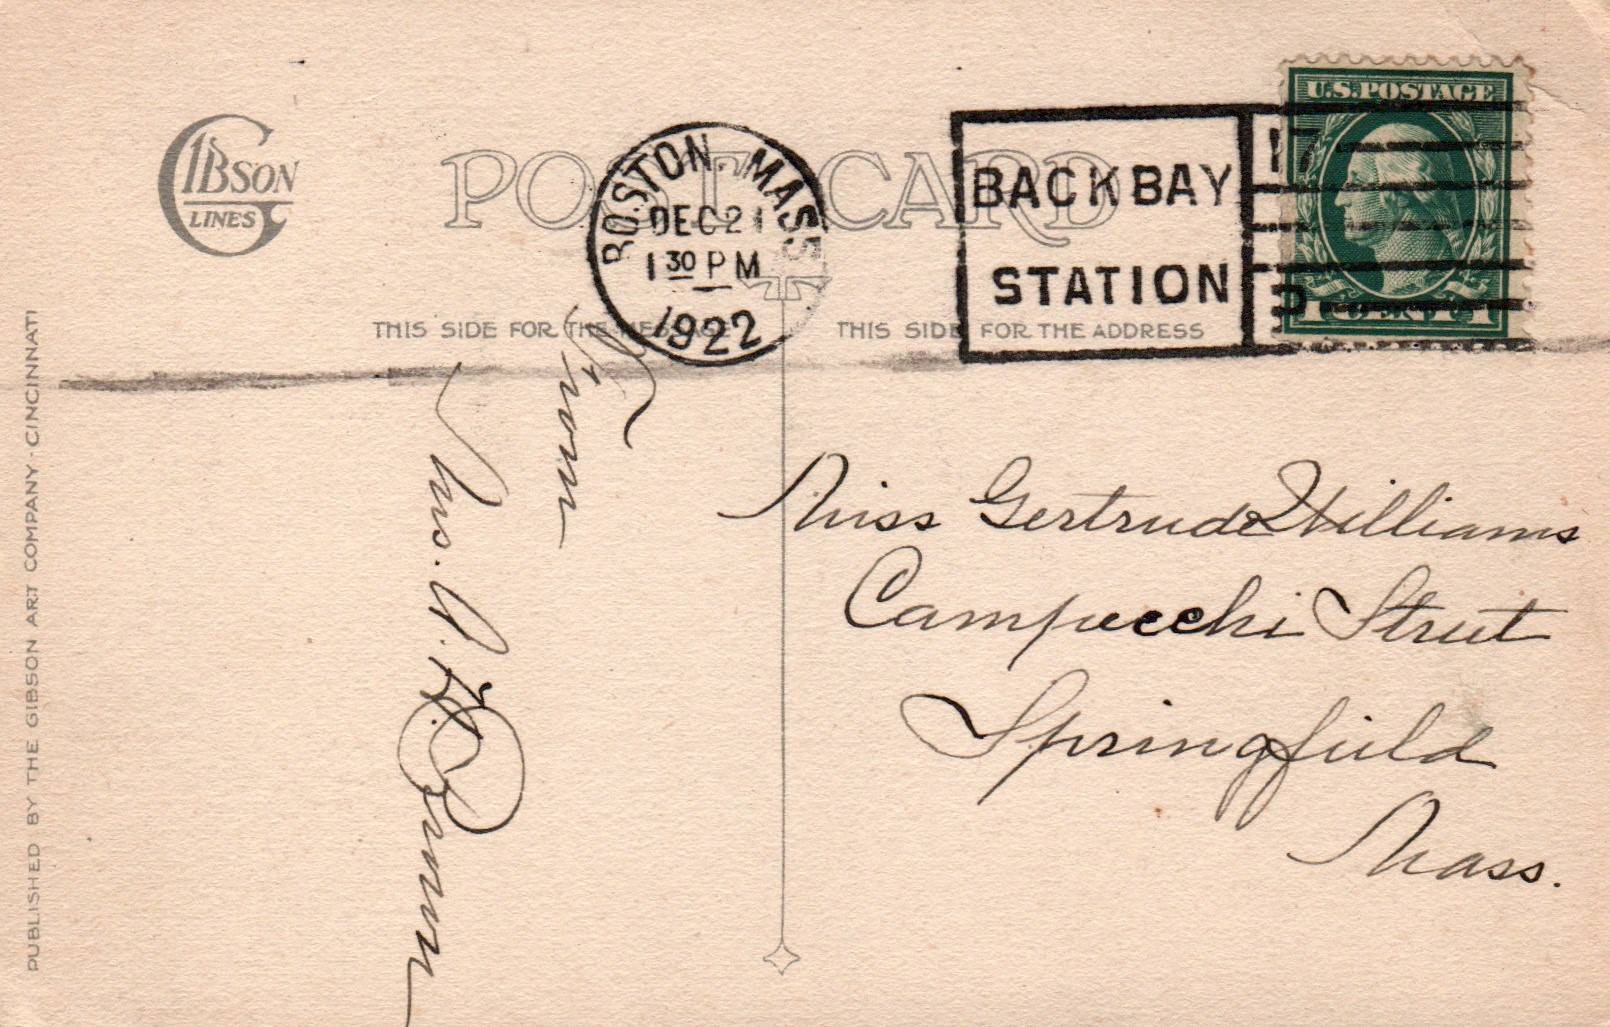 GIBSON
LINES
POST CARD
BOSTON, MASS
DEC 21
1 30 PM
1922
BACK BAY
STATION
17
U.S. POSTAGE
THIS SIDE FOR THE MESSAGE
THIS SIDE FOR THE ADDRESS
From
Mrs. A. H.
Miss Gertrude Williams
Campecchi Street
Springfield
Mass.
PUBLISHED BY THE GIBSON ART COMPANY - CINCINNATI